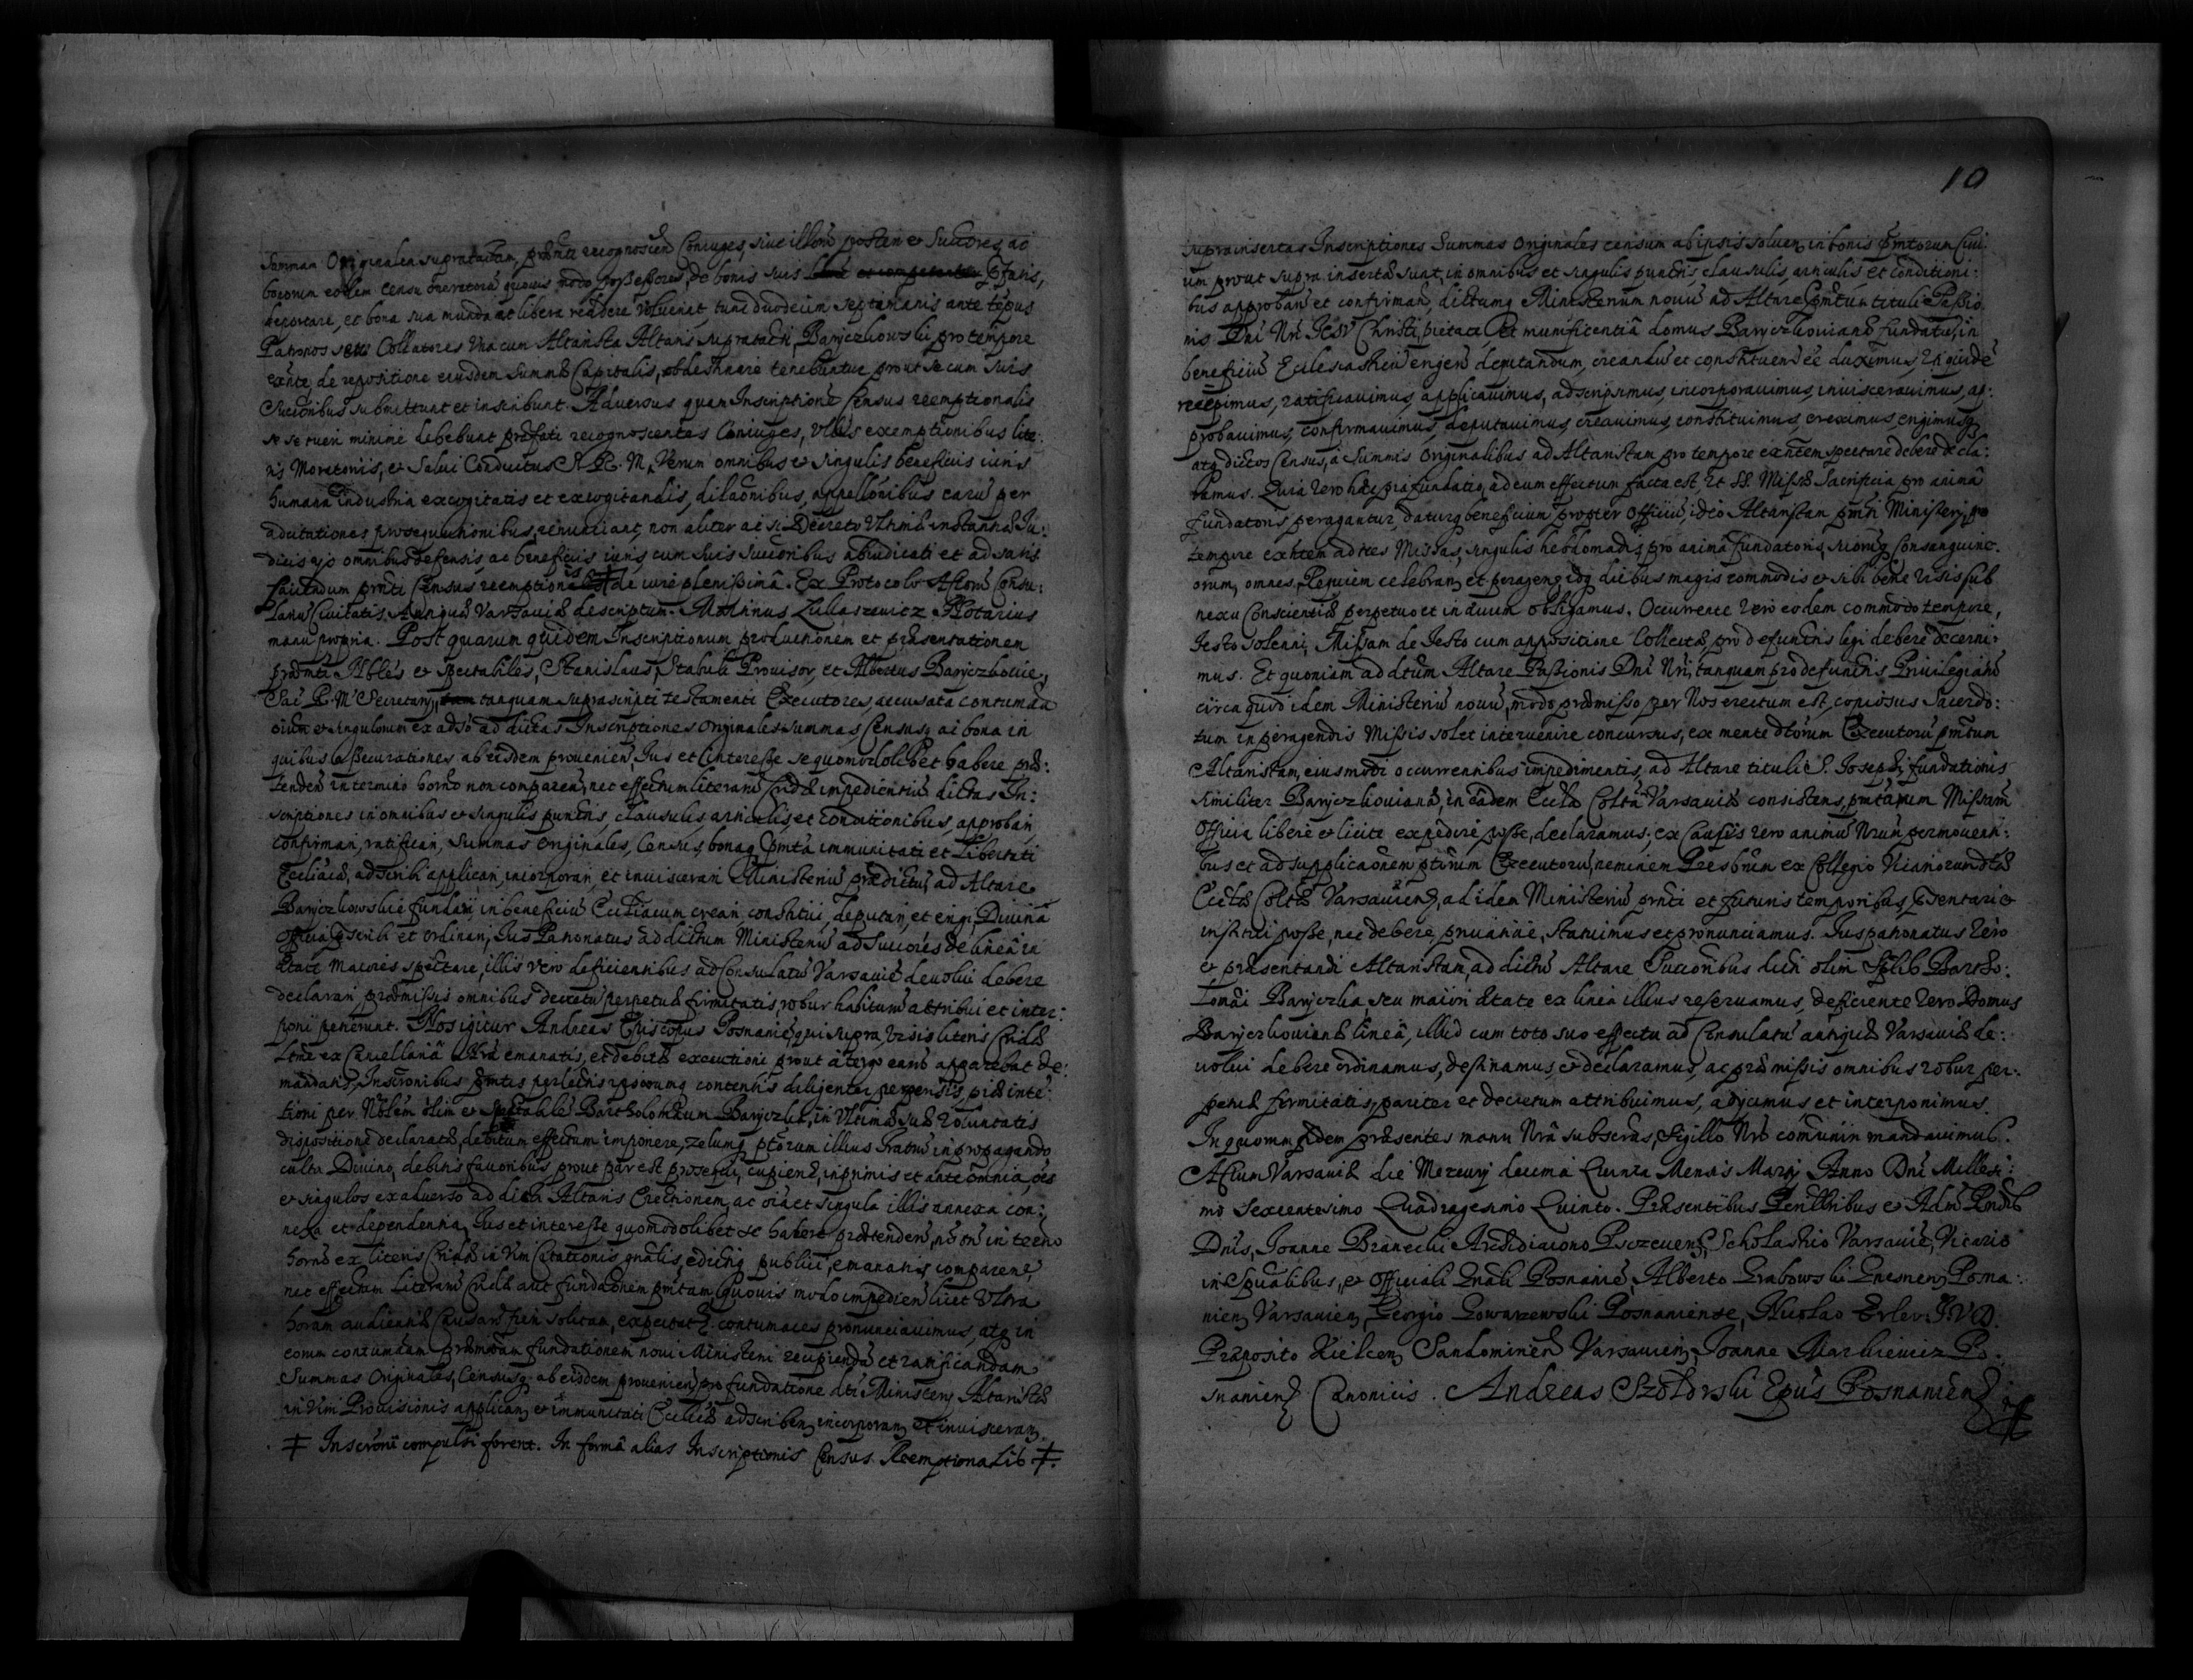 Summam Originalem supratactam, prænti recognoscen Coniuges, siue illorū posteri et Succōres, ac
bonorum eodem censu oneratorū quouis modo possessores, de bonis suis
deportare, et bona sua munda ac libera reddere voluerint, tunc duodecim septimanis ante tēpus
Patronos seu Collatores vna cum Altarista Altaris supratacti, Baryczkowski pro tempore
exnte, de repositione eiusdem summæ Capitalis, obdestinare tenebuntur prout se cum suis
Succōribus submittunt et inscribunt. Aduersus quam Inscriptionē Census reemptionalis
se tueri minimè debebunt præfati recognoscentes Coniuges, vllis exemptionibus lite:
ris Moratoriis, et Salui Conductus S. R. M, Verum omnibus et singulis beneficiis iuris
humana industria excogitatis et excogitandis, dilāonibus, appellōnibus earū per
adcitationes prosequutionibus, renunciant, non aliter ac si Decreto Vltimæ instantiæ Iu:
dicis omnibus defensis, ac beneficiis iuris cum suis Succōribus abiudicati et ad satis
faciendum prnti Census reemptiona de iure plenissimâ. Ex Protocolo Actorū Consu:
lariū Ciuitatis Antiquæ Varsauiæ descriptum. Martinus Zukaszewicz Notarius
manu propria. Post quarum quidem Inscriptionum productionem et præsentationem
præmti Nbles et spectabiles, Stanislaus, Stabuli Prouisor, et Albertus Baryczkowie,
Sac R. M Secretarij, tanquam suprascripti testamenti Executores, accusata contumācia
oium et singulorum ex aduso ad dictas Inscriptiones originales summas, Census, ac bona in
quibus assecurationes ab eisdem prouenien, Ius et Interesse se quomodolibet habere præ:
tenden in termino horno non comparen, nec effectum literarū Cridæ impedientiū dictas In:
scriptiones in omnibus et singulis punctis, clausulis, articulis, et conditionibus, approbari,
confirmari, ratificari, summas originales, Census, bonaq pmta immunitati et Libertati
Eccliacæ, adscribi applicari, incorporari, et inuiscerari Ministeriū prædictū, ad Altare
Baryczkowskie fundari in beneficiū Eccliacum creari constitui, deputari, et erigi, Diuina
Officia præscribi et ordinari, Ius Patronatus ad dictum Ministeriū ad Succōres de linea in
ætate maiores spectare, illis vero deficientibus ad Consulatū Varsauiē deuolui debere
declarari, præmissis omnibus decretū perpetuæ firmitatis, robur habiturū attribui et inter:
poni petierunt. Nos igitur Andreas Episcopus Posnaniē, qui supra, visis literis Cridæ
Ltme ex Cancellariâ Nrâ emanatis, et debitæ executioni prout à tergo earū apparebat de:
mandatis, Inscrōnibus pmtis perlectis ipsorumq contentis diligenter perpensis, piæ intē:
tioni per Nōblem olim et Spectabile Bartholomæum Baryczka, in Vltimæ suæ voluntatis
dispositione declaratæ, debitum effectum imponere, zelumq ptorum illius Fratrū in propagando
cultu Diuino, debitis fauoribus prout par est prosequi, cupien, inprimis et ante omnia, oēs
et singulos ex aduerso ad dicta Altaris Erectionem, ac oia et singula illis annexa con:
nexa et dependentia Ius et interesse quomodolibet se habere prætenden, in termino
horno ex literis Cridæ in Vim Citationis gnalis, edictiq publici, emanatis comparen,
nec effectum literarū Cridæ aut fundaōnem pmtam, quouis modo impedien licet Vltra
horam audientiæ Causarū fieri solitam, expectatæ contumaces pronunciauimus, atq in
eorum contumāciam præmissam fundationem noui Ministerii recipiendā et ratificandam
Summas Originales, Censusq ab eisdem prouenien, pro fundatione dti Ministerij Altaristæ
in Vim Prouisionis applican, et immunitati Eccliæ adscriben, incorporan, et inuisceran,
‡ Inscrōni compulsi forent. In formâ alias Inscriptionis Census Reemptionalis ‡.
10
suprainsertas Inscriptiones Summas originales censum ab ipsis soluen, in bonis pmtorum Ciui:
um prout supra inserta sunt, in omnibus et singulis punctis, clausulis, articulis, et conditioni:
bus approban et confirman, dictumq Ministerium nouū ad Altare pmtum tituli Passio
nis Dni Nri IESV Christi, pietate, et munificentiâ domus Baryczkouianæ fundatū, in
beneficiū Ecclesiasticū erigen deputandum, creandū et constituen ēe duximus, vt quidē
recepimus, ratificauimus, applicauimus, adscripsimus, incorporauimus, inuiscerauimus, ap:
probauimus, confirmauimus, deputauimus, creauimus, constituimus, ereximus, erigimusq,
atq dictos Census, à Summis Originalibus ad Altaristam pro tempore exntem spectare debere decla:
ramus. Quia vero hæc pia fundatio, ad eum effectum facta est, vt SS. Missæ Sacrificia pro animâ
fundatoris peragantur, daturq beneficium propter Officiū, ideo Altaristam pmti Ministerij, pro
tempore exntem ad tres Missas, singulis hebdomadis, pro animâ fundatoris, suorūq Consanguine:
orum, omnes, Requiem celebran, et peragen, idq diebus magis commodis et sibi bene visis sub
nexu Conscientiæ perpetuo et in æuum obligamus. Occurrente vero eodem commodo tempore,
Festo solenni, Missam de Festo cum appositione Collectæ, pro defunctis legi debere decerni:
mus. Et quoniam ad dtum Altare Passionis Dni Nri, tanquam pro defunctis Priuilegiatū
circa quod idem Ministeriū nouū, modo præmisso per Nos erectum est, copiosus Sacerdo:
tum in peragendis Missis solet interuenire concursus, ex mente dtorum Executorū pmtum
Altaristam, eiusmodi occurrentibus impedimentis, ad Altare tituli S. Iosephi, fundationis
similiter Baryczkouianæ, in eadem Eccla Coltâ Varsauiæ consistens, pmtarum Missarū
Officia liberè et licitè expedire posse, declaramus; ex Causis vero animū Nrum permouen:
bus et ad supplicaōnem ptorum Executorū, neminem Presbrum ex Collegio Vicariorum dtæ
Ecclæ Coltæ Varsauien, ad idem Ministeriū prnti et futuris temporibus, præsentari et
institui posse, nec debere, priuatiuè, statuimus et pronunciamus. Iuspatronatus vero
et præsentandi Altaristam, ad dictū Altare Succōribus dicti olim Spbls Bartho:
lomæi Baryczka, seu maiori ætate ex linea illius reseruamus, deficiente vero Domus
Baryczkouianæ lineâ, illud cum toto suo effectu ad Consulatū antiquæ Varsauiæ de:
uolui debere ordinamus, destinamus, et declaramus, ac præmissis omnibus robur per:
petuæ firmitatis, pariter et decretum attribuimus, adijcimus et interponimus.
In quorum fidem præsentes manu Nrâ subscras, Sigillo Nro comuniri mandauimus.
Actum Varsauiæ die Mercurij decima Quinta Mensis Martij Anno Dni Millesi:
mo Sexcentesimo Quadragesimo Quinto. Præsentibus Perillribus et Adm Rndis
Dnis, Ioanne Branecki Archidiacono Pszczeuen, Scholastico Varsauiē, Vicario
in Spualibus, et Officiali Gnali Posnaniē, Alberto Grabowski Gnesnen, Posna:
nien, Varsauien, Georgio Gowarzewski Posnaniense, Nicolao Erler I.V.D.
Præposito Kielcen, Sandomirien, Varsauien, Ioanne Markiewicz Po:
snanien Canonicis. Andreas Szołdrski Epūs Posnanien ‡